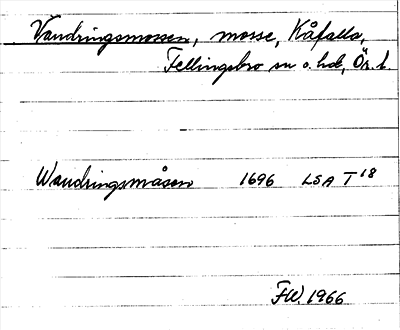 Vandringsmossen, mosse, Kåfalla,
Fellingsbro sn o. hd, Ör. l.
Wandringsmåsen 1696 LSA T 18
F.W. 1966